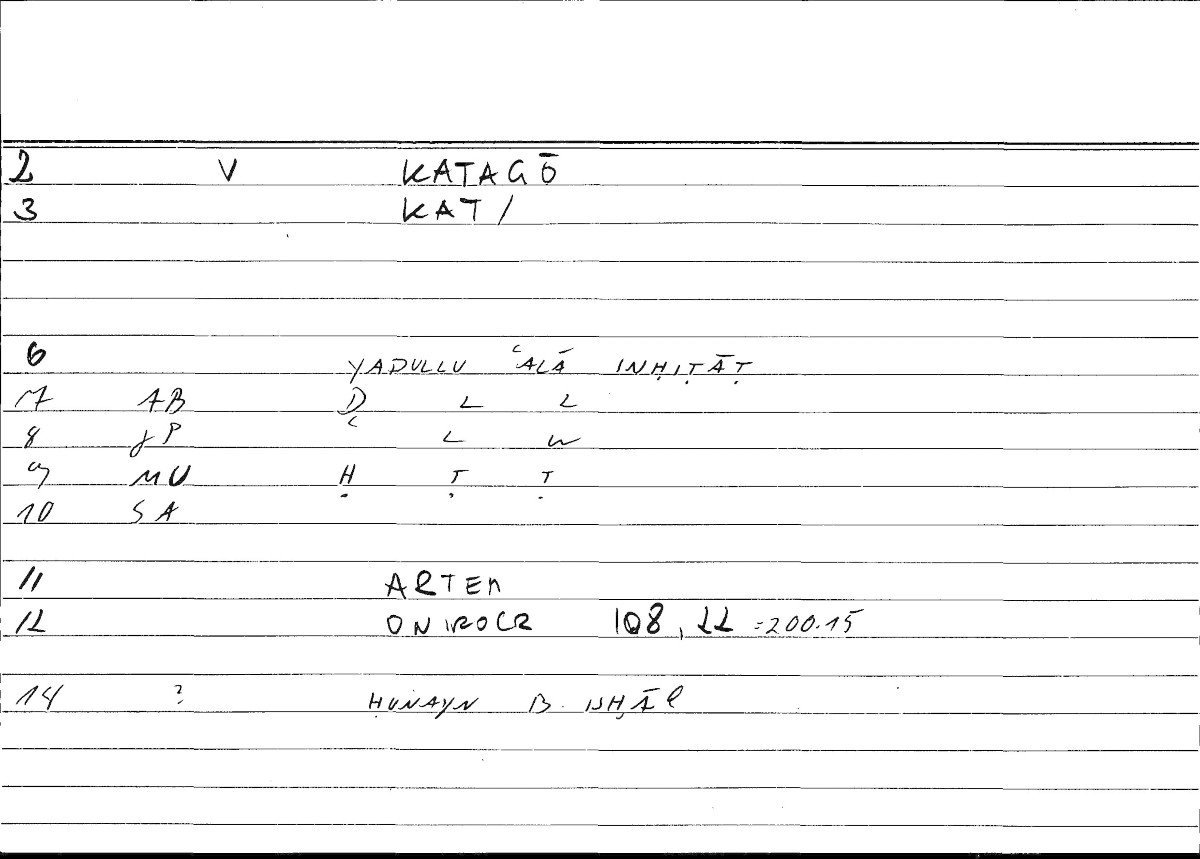 2 V KATAGŌ
3 KAT /
6 YADULLU ʿALĀ INḤIṬĀṬ
7 AB D L L
8 JP ʿ L W
9 MU Ḥ Ṭ Ṭ
10 SA
11 ARTEM
12 ONIROCR 108,22 =200.15
14 ? ḤUNAYN B. ISḤĀQ